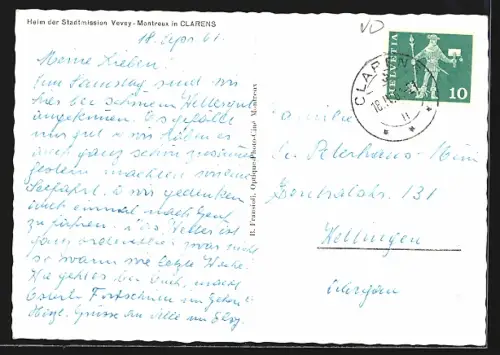 Heim der Stadtmission Vevey-Montreux in CLARENS
18. Apr. 61.
Meine Lieben!
Am Samstag sind wir
hier bei schönem Wetter gut
angekommen. Es gefällt
uns gut & wir haben es
auch ganz schön
gestern machten wir eine
Seefahrt & wir gedenken
noch einmal nach Genf
zu fahren. Das Wetter ist
ganz ordentlich zwar nicht
so warm wie letzte Woche.
Wie geht es bei Euch, macht
Fortschritte im Gehen?
Herzl. Grüsse an alle
R. Fraenioli, Optique-Photo-Ciné Montreux
HELVETIA
10
CLARENS
18.
Familie
Zentralstr. 131
Wettingen
Aargau